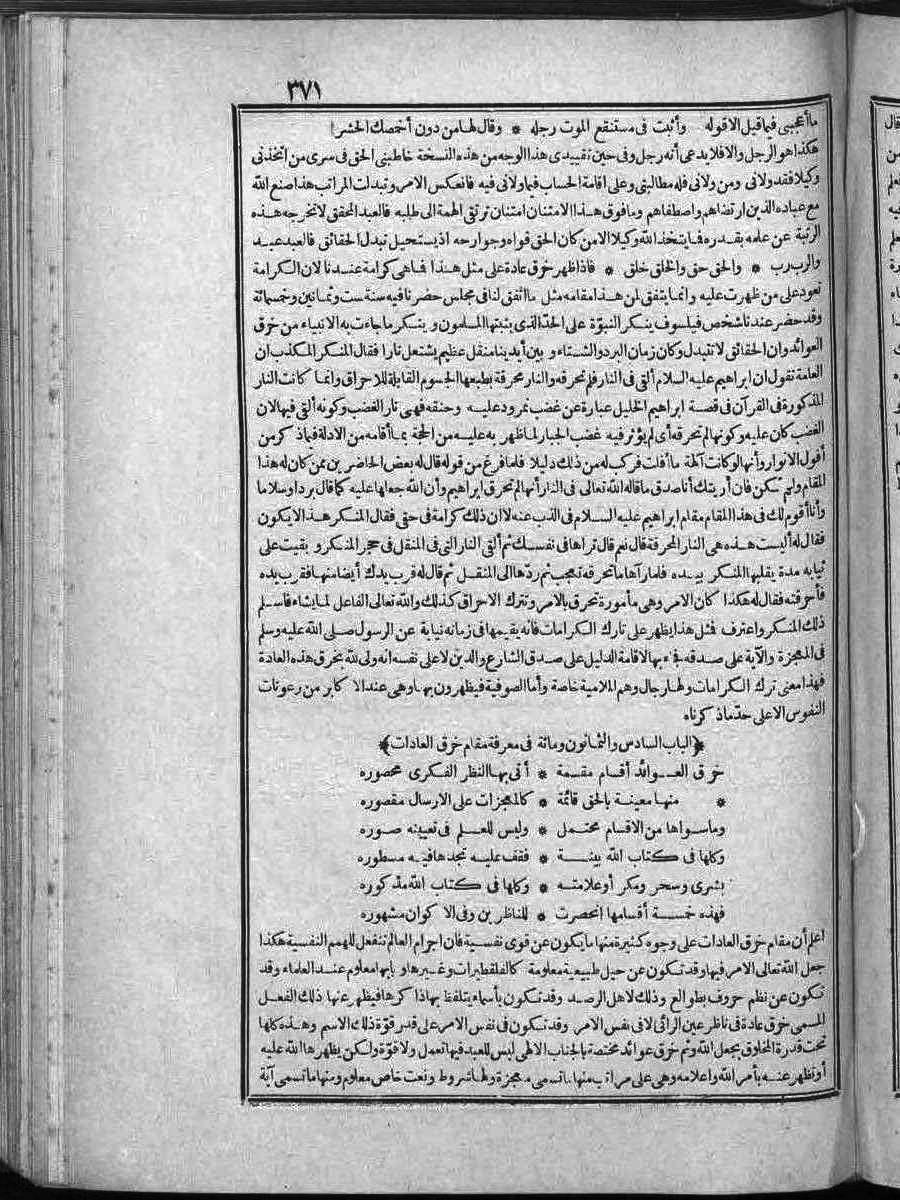 ٣٧١
ما أعجبني فيما قيل الا قوله وأثبت في مستنقع الموت رجله * وقال لها من دون أخمصك الحشر
هكذا هو الرجل والا فلا يدعى أنه رجل وفي حين تقييدي هذا الوجه من هذه النسخة خاطبني الحق في سري من اتخذني
وكيلا فقد ولاني ومن ولاني فله مطالبتي وعلى اقامة الحساب فيما ولاني فيه فانعكس الامر وتبدلت المراتب هذا صنع الله
مع عباده الذين ارتضاهم واصطفاهم وما فوق هذا الامتنان امتنان ترتقي الهمة الى طلبه فالعبد المحقق لا تخرجه هذه
الرتبة عن علمه بقدره فما يتخذ الله وكيلا الا من كان الحق قواه وجوارحه اذ يستحيل تبدل الحقائق فالعبد عبد
والرب رب * والحق حق والخلق خلق * فاذا ظهر خرق عادة على مثل هذا فما هي كرامة عندنا لان الكرامة
تعود على من ظهرت عليه وانما يتفق لمن هذا مقامه مثل ما اتفق لنا في مجلس حضرنا فيه سنة ست وثمانين وخمسمائة
وقد حضر عندنا شخص فيلسوف ينكر النبوة على الحد الذي يثبتها المسلمون وينكر ما جاءت به الانبياء من خرق
العوائد وان الحقائق لا تتبدل وكان زمان البرد والشتاء وبين أيدينا منقل عظيم يشتعل نارا فقال المنكر المكذب ان
العامة تقول ان ابراهيم عليه السلام ألقي في النار فلم تحرقه والنار محرقة بطبعها الجسوم القابلة للاحراق وانما كانت النار
المذكورة في القرآن في قصة ابراهيم الخليل عبارة عن غضب نمرود عليه وحنقه فهي نار الغضب وكونه ألقي فيها لان
الغضب كان عليه وكونها لم تحرقه أي لم يؤثر فيه غضب الجبار لما ظهر به عليه من الحجة بما أقامه من الادلة فيما ذكر من
أفول الانوار وأنها لو كانت آلهة ما أفلت فركب له من ذلك دليلا فلما فرغ من قوله قال له بعض الحاضرين ممن كان له هذا
المقام ولم تمكن فان أريتك أنا صدق ما قاله الله تعالى في النار أنها لم تحرق ابراهيم وأن الله جعلها عليه كما قال بردا وسلاما
وأنا أقوم لك في هذا المقام مقام ابراهيم عليه السلام في الذب عنه لا ان ذلك كرامة في حقي فقال المنكر هذا لا يكون
فقال له أليست هذه هي النار المحرقة قال نعم قال تراها في نفسك ثم ألقى النار التي في المنقل في حجر المنكر وبقيت على
ثيابه مدة يقلبها المنكر بيده فلما رآها ما تحرقه تعجب ثم ردها الى المنقل ثم قال له قرب يدك أيضا منها فقرب يده
فأحرقته فقال له هكذا كان الامر وهي مأمورة تحرق بالامر وتترك الاحراق كذلك والله تعالى الفاعل لما يشاء فأسلم
ذلك المنكر واعترف فمثل هذا يظهر على تارك الكرامات فانه يقيمها في زمانه نيابة عن الرسول صلى الله عليه وسلم
في المعجزة والآية على صدقه فجيء بها لاقامة الدليل على صدق الشارع والدين لا على نفسه انه ولي لله بخرق هذه العادة
فهذا معنى ترك الكرامات ولها رجال وهم الملامية خاصة وأما الصوفية فيظهرون بها وهي عند الاكابر من رعونات
النفوس الا على حد ما ذكرناه
﴿الباب السادس والثمانون ومائة في معرفة مقام خرق العادات﴾
خرق العوائد أقسام مقسمة * أتى بها النظر الفكري محصوره
* منها معينة بالحق قائمة * كالمعجزات على الارسال مقصوره
وما سواها من الاقسام محتمل * وليس للعلم في تعيينه صوره
وكلها في كتاب الله بينة * فقف عليه تجدها فيه مسطوره
بشرى وسحر ومكر أو علامته * وكلها في كتاب الله مذكوره
فهذه خمسة أقسامها انحصرت * للناظرين وفي الاكوان مشهوره
اعلم أن مقام خرق العادات على وجوه كثيرة منها ما يكون عن قوى نفسية فان اجرام العالم تنفعل للهمم النفسية هكذا
جعل الله تعالى الامر فيها وقد تكون عن حيل طبيعية معلومة كالفلقطيرات وغيرها وبابها معلوم عند العلماء وقد
تكون عن نظم حروف بطوالع وذلك لاهل الرصد وقد تكون بأسماء يتلفظ بها ذاكرها فيظهر عنها ذلك الفعل
المسمى خرق عادة في ناظر عين الرائي لا في نفس الامر وقد تكون في نفس الامر على قدر قوة ذلك الاسم وهذه كلها
تحت قدرة المخلوق بجعل الله وثم خرق عوائد مختصة بالجناب الالهي ليس للعبد فيها تعمل ولا قوة ولكن يظهرها الله عليه
أو تظهر عنه بأمر الله واعلامه وهي على مراتب منها ما تسمى معجزة ولها شروط ونعت خاص معلوم ومنها ما تسمى آية